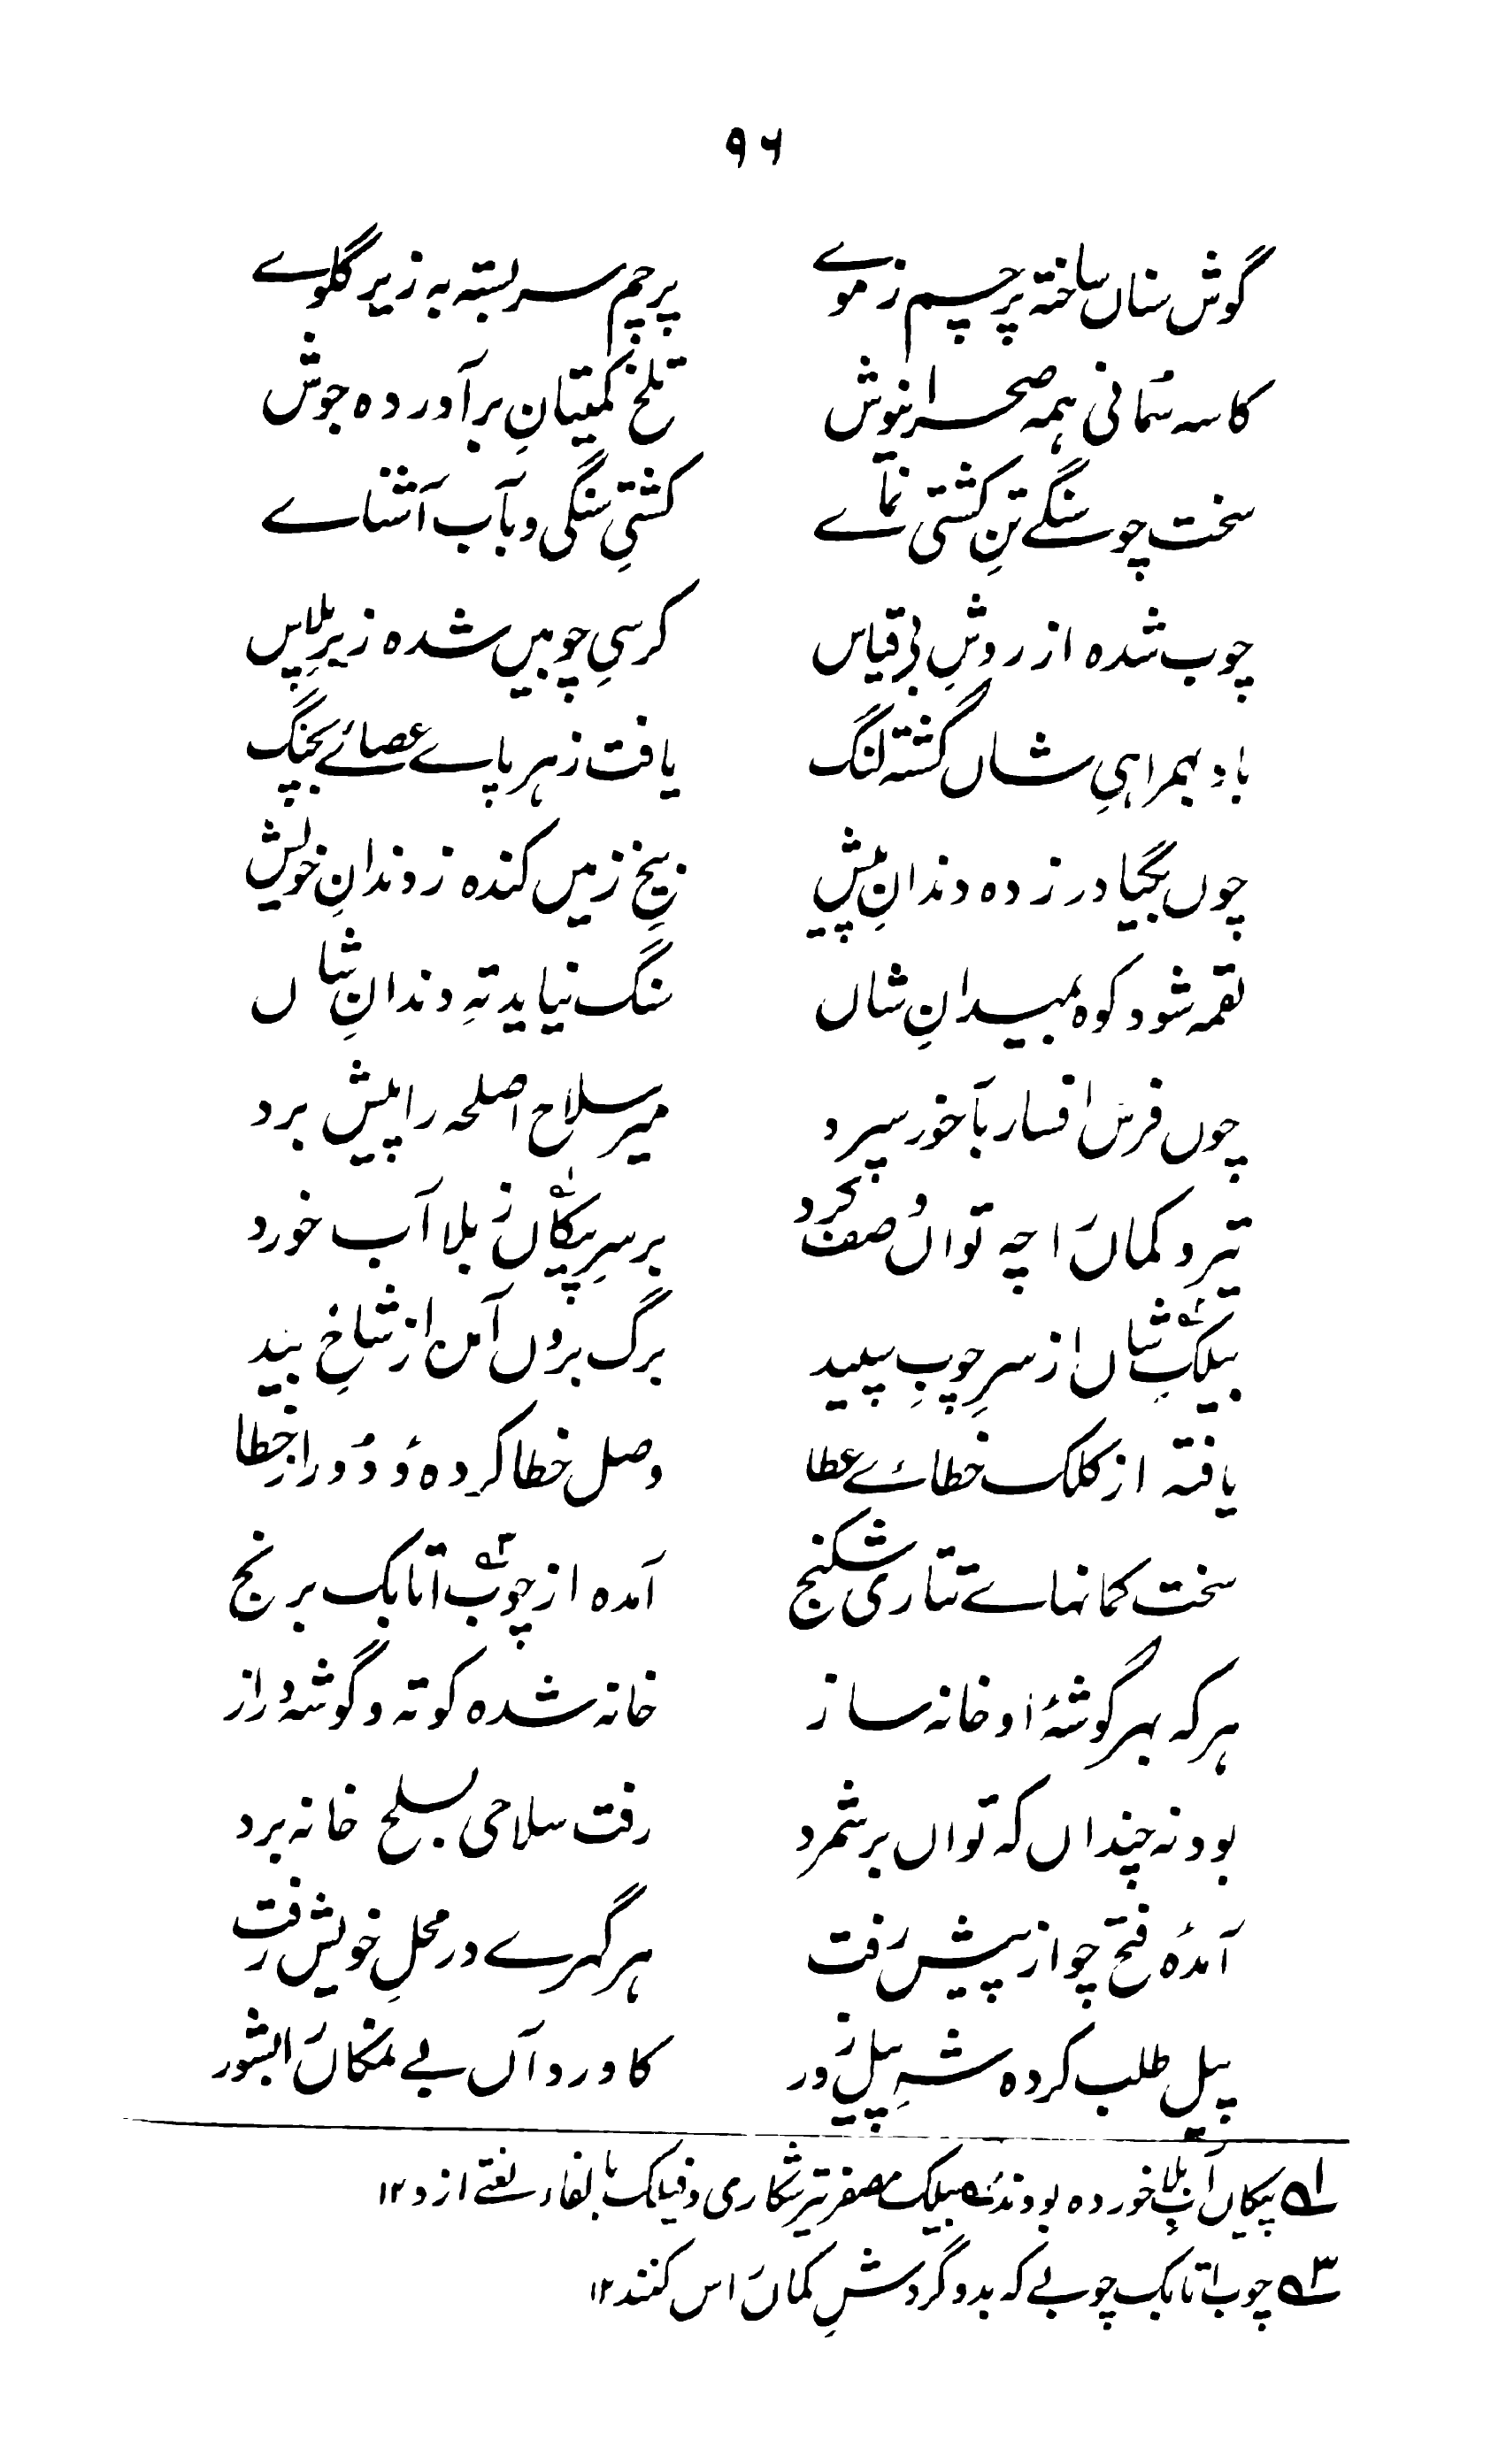 ۹۶
گوش سناں ساختہ پرچم ز موے پرچم سر بستہ بہ زیر گلوے
کاسہ سمانی ہمہ صحرا نیوش تلخ کمیتانِ برآوردہ جوش
سخت چو سنگے تنِ کشتی نمائے کشتیِ سنگی و بآب آشناے
چوب شدہ از روشِ بی قیاس کرسیِ چوبیں شدہ زیرِ پلاس
باد بہمراہیِ شاں گشتہ لنگ یافت ز ہر پاے عصائے بچنگ
چوں بگیا در زدہ دندانِ پیش بیخِ زمیں کندہ ز دندانِ خویش
لقمہ شود کوہ بمیدانِ شاں سنگ نیاید تہِ دندانِ شاں
چوں فرس افسار بآخور سپرد میر سلاح اصلحہ را پیش برد
تیر و کماں را چہ تواں وصف کرد بر سرِ پیکاں۱؎ ز بلا آب خورد
بیلکِ۲؎ شاں از سرِ چوبِ سپید برگ بروں آمدن از شاخِ بید
یافتہ از کلک خطائے عطا وصل خطا کردہ وُ دُور از خطا
سخت کمانہاے تتاری شکنج آمدہ از چوب۳؎ اتابک برنج
ہر کہ بہر گوشۂ او خانہ ساز خانہ شدہ کوتہ و گوشہ دراز
بود نہ چنداں کہ تواں بر شمرد رفت سلاحی بسلح خانہ برد
آمدہ فتح چو از پیش رفت ہر گہرے در محلِ خویش رفت
پیل طلب کردہ شہِ پیل زور کاورد آں بے نمکاں را بشور
۱؎ پیکاں آب بلا خوردہ بودند ۲؎ بیلک مصغر تیر شکاری و فیلک بالفاء لغتے ازو ۱۲
۳؎ چوب اتابک چوبے کہ بدو گردشِ کماں راس کنند ۱۲